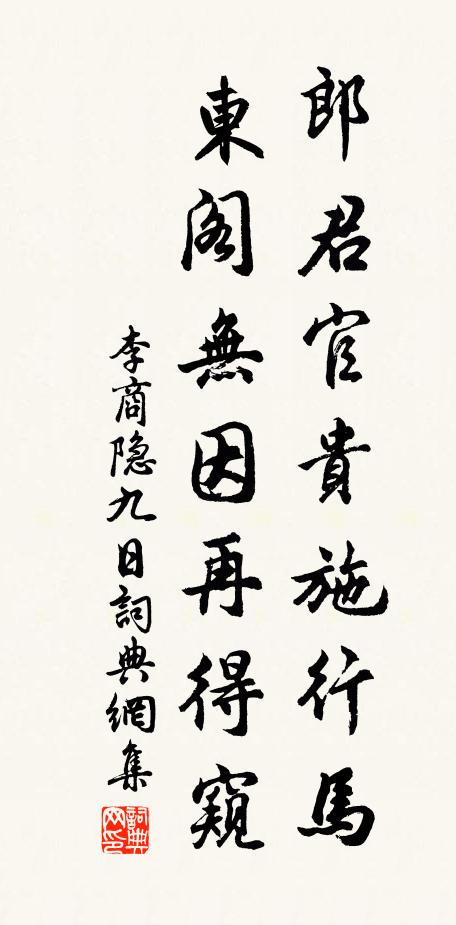 郎君官貴施行馬
東阁無因再得窺
李商隐九日詞典網集
詞典网印